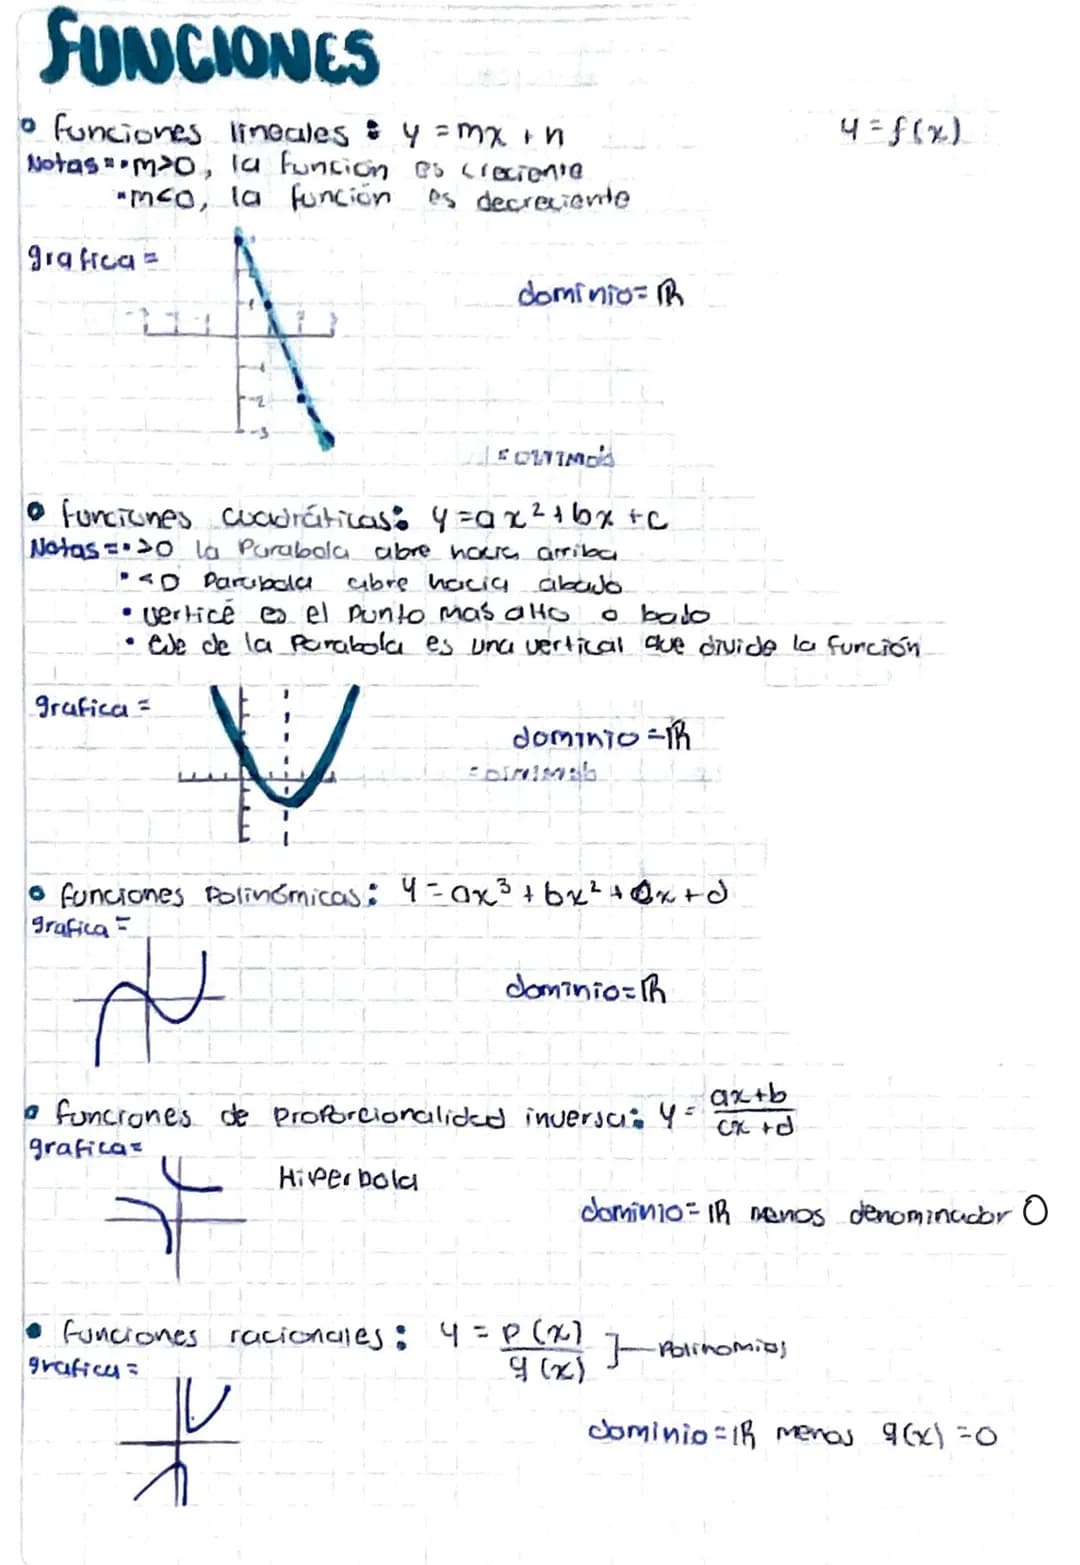 FUNCIONES
funciones lineales: y = mx + n
y = f(x)
Notas = • m>0, la función es creciente
• m<0, la función es decreciente
grafica =
dominio = ℝ
-2
-3
funciones cuadráticas: y = ax² + bx + c
Notas = • >0 la Parabola abre hacia arriba
• <0 Parabola abre hacia abajo
• vertice es el punto mas alto o bajo
• eje de la Parabola es una vertical que divide la función
grafica =
dominio = ℝ
funciones Polinómicas: y = ax³ + bx² + cx + d
grafica =
dominio = ℝ
funciones de proporcionalidad inversa: y = ax+b / cx+d
grafica =
Hiperbola
dominio = ℝ menos denominador 0
funciones racionales: y = p(x) / q(x) ] Polinomios
grafica =
dominio = ℝ menos q(x) = 0